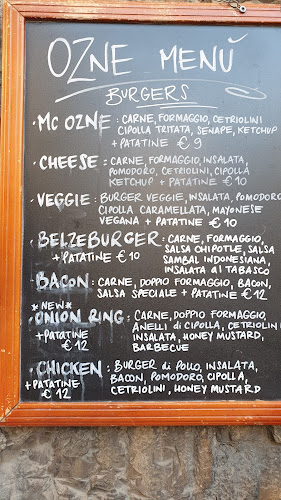 OZNE MENÙ
BURGERS
• MC OZNE : CARNE, FORMAGGIO, CETRIOLINI
CIPOLLA TRITATA, SENAPE, KETCHUP
+ PATATINE € 9
• CHEESE : CARNE, FORMAGGIO, INSALATA,
POMODORO, CETRIOLINI, CIPOLLA
KETCHUP + PATATINE € 10
• VEGGIE : BURGER VEGGIE, INSALATA, POMODORO
CIPOLLA CARAMELLATA, MAYONESE
VEGANA + PATATINE € 10
• BELZEBURGER : CARNE, FORMAGGIO,
+ PATATINE € 10 SALSA CHIPOTLE, SALSA
SAMBAL INDONESIANA,
INSALATA al TABASCO
• BACON : CARNE, DOPPIO FORMAGGIO, BACON,
SALSA SPECIALE + PATATINE € 12
*NEW*
• ONION RING : CARNE, DOPPIO FORMAGGIO,
+PATATINE ANELLI di CIPOLLA, CETRIOLINI
€ 12 INSALATA, HONEY MUSTARD,
BARBECUE
• CHICKEN : BURGER di POLLO, INSALATA,
+ PATATINE BACON, POMODORO, CIPOLLA,
€ 12 CETRIOLINI, HONEY MUSTARD